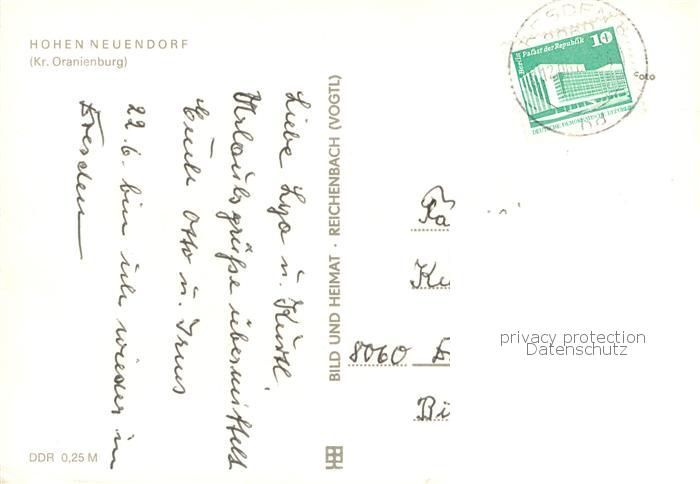 HOHEN NEUENDORF
(Kr. Oranienburg)
Liebe Lya u. Kurtl,
Urlaubsgrüße übermittelt
Euch Otto u. Irms
22.6. bin ich wieder in
Dresden
BILD UND HEIMAT · REICHENBACH (VOGTL)
DDR 0,25 M
Berlin, Palast der Republik 10
DEUTSCHE DEMOKRATISCHE REPUBLIK
Fa
Ku
8060
Bi
privacy protection
Datenschutz